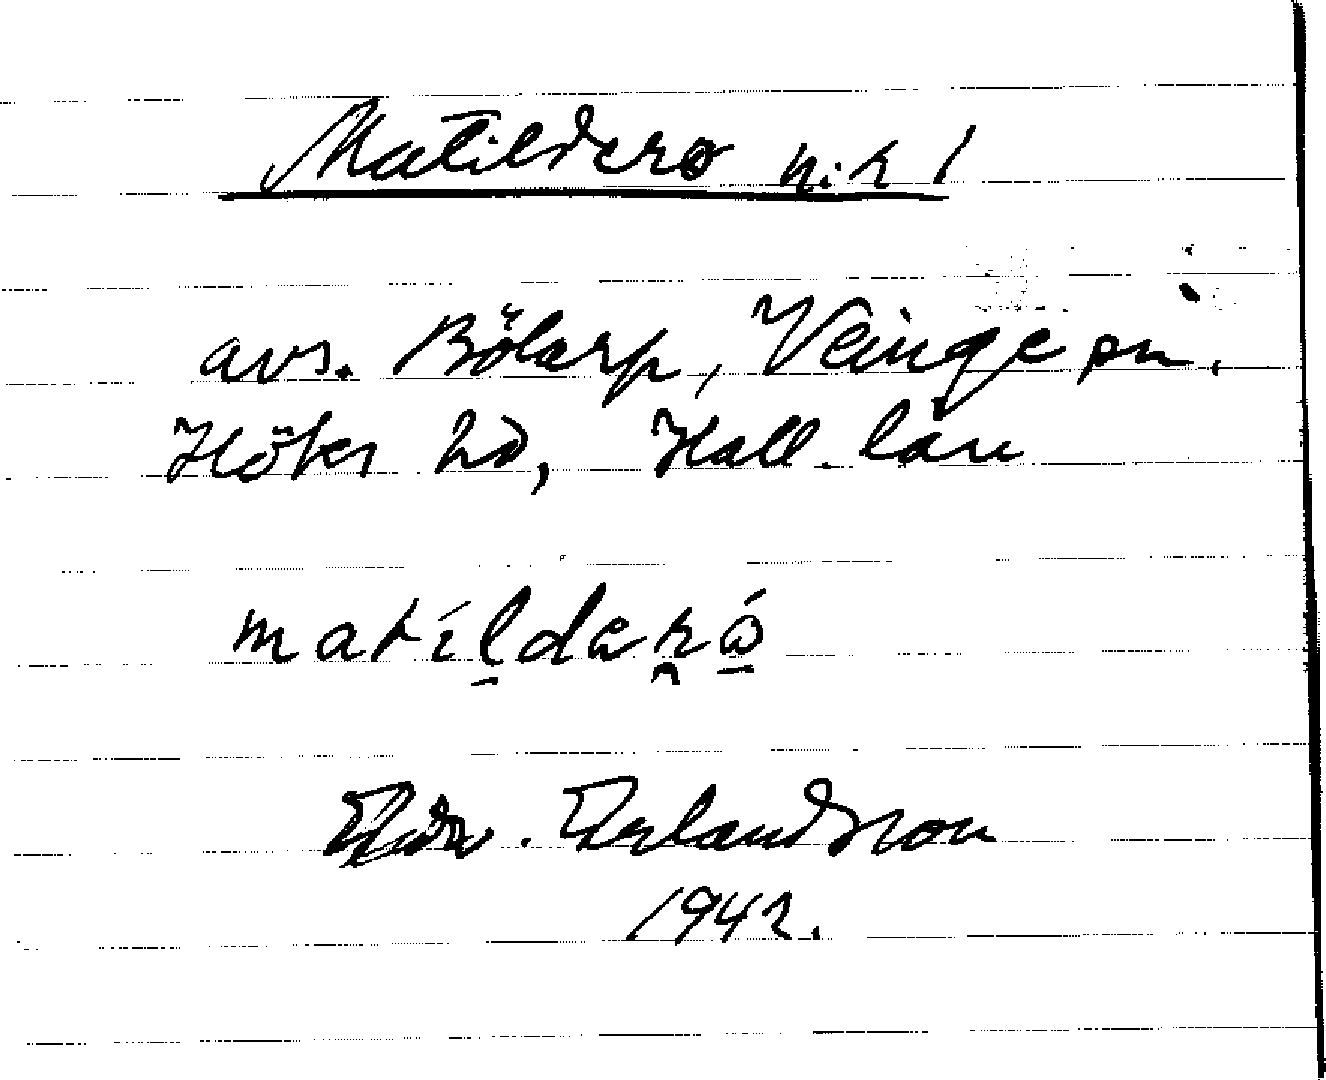 Matildero n:r 1
avs. Bölarp, Veinge sn.
Höks hd, Hall. län
matíldaró
Edv. Erlandsson
1942.